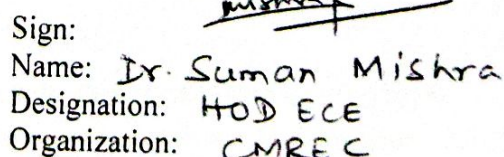 Sign:
Name: Dr. Suman Mishra
Designation: HOD ECE
Organization: CMREC